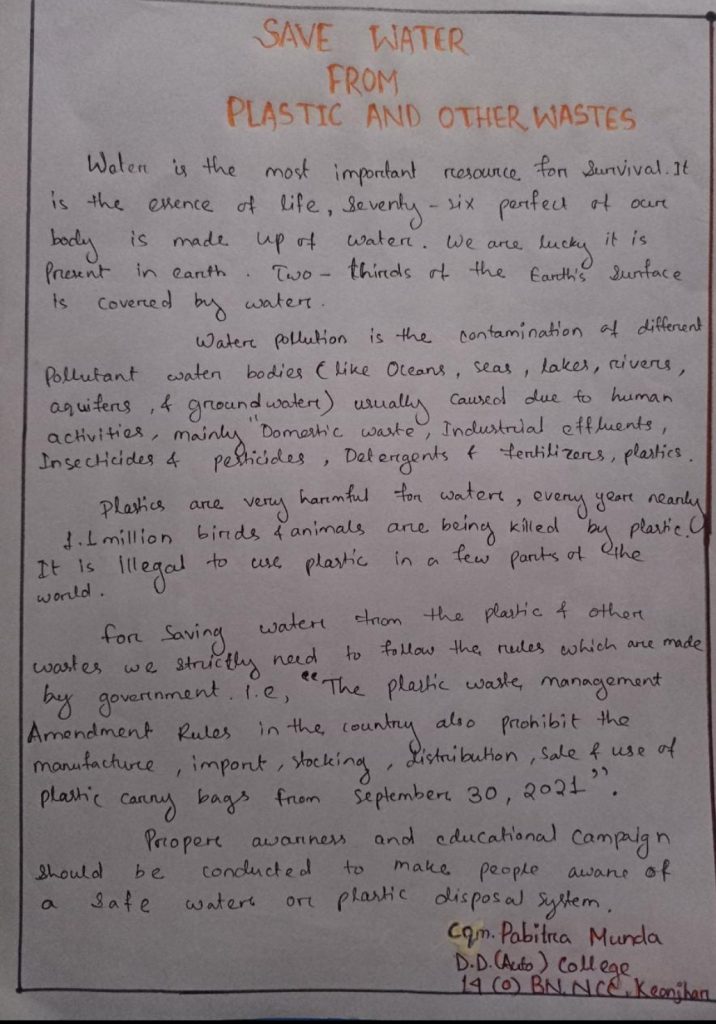 SAVE WATER
FROM
PLASTIC AND OTHER WASTES
Water is the most important resource for Survival. It
is the essence of life, Seventy-six perfect of our
body is made up of water. We are lucky it is
Present in earth. Two-thirds of the Earth's Surface
is covered by water.
Water pollution is the contamination of different
Pollutant water bodies (like Oceans, seas, lakes, rivers,
aquifers, & groundwater) usually caused due to human
activities, mainly "Domestic waste, Industrial effluents,
Insecticides & pesticides, Detergents & fertilizers, plastics.
Plastics are very harmful for water, every year nearly
1.1 million birds & animals are being killed by plastic.
It is Illegal to use plastic in a few parts of the
world.
for Saving water from the plastic & other
wastes we strictly need to follow the rules which are made
by government. I.e, "The plastic waste management
Amendment Rules in the country also prohibit the
manufacture, import, stocking, distribution, sale & use of
plastic carry bags from September 30, 2021".
Proper awarness and educational campaign
should be conducted to make people aware of
a safe water or plastic disposal system.
Cqm. Pabitra Munda
D.D.(Auto) College
14 (O) BN. NCC, Keonjhar